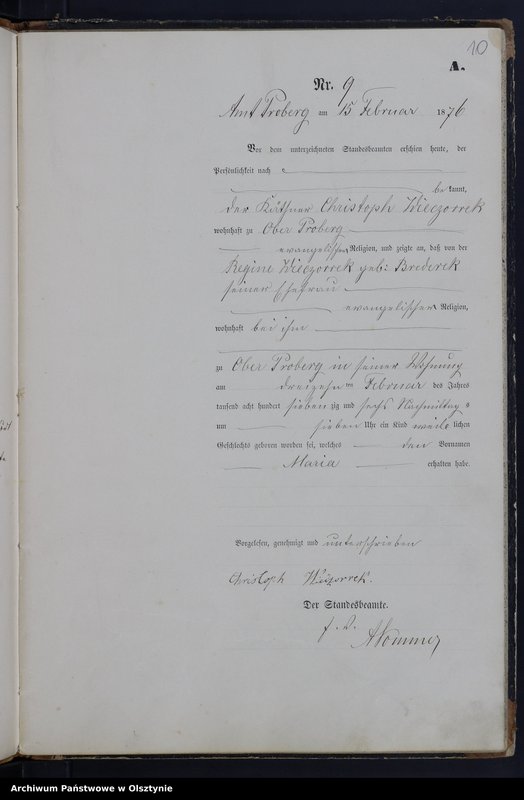 10
A.
Nr. 9
Amt Proberg am 15 Februar 1876
Vor dem unterzeichneten Standesbeamten erschien heute, der
Persönlichkeit nach
bekannt,
der Käthner Christoph Wieczorrek
wohnhaft zu Ober Proberg
evangelischer Religion, und zeigte an, daß von der
Regine Wieczorrek geb: Brederek
seiner Ehefrau
evangelischer Religion,
wohnhaft bei ihm
zu Ober Proberg in seiner Wohnung
am dreizehn ten Februar des Jahres
tausend acht hundert sieben zig und sechs Nachmittags
um sieben Uhr ein Kind weiblichen
Geschlechts geboren worden sei, welches den Vornamen
Maria erhalten habe.
Vorgelesen, genehmigt und unterschrieben
Christoph Wiezorrek.
Der Standesbeamte.
Archiwum Państwowe w Olsztynie